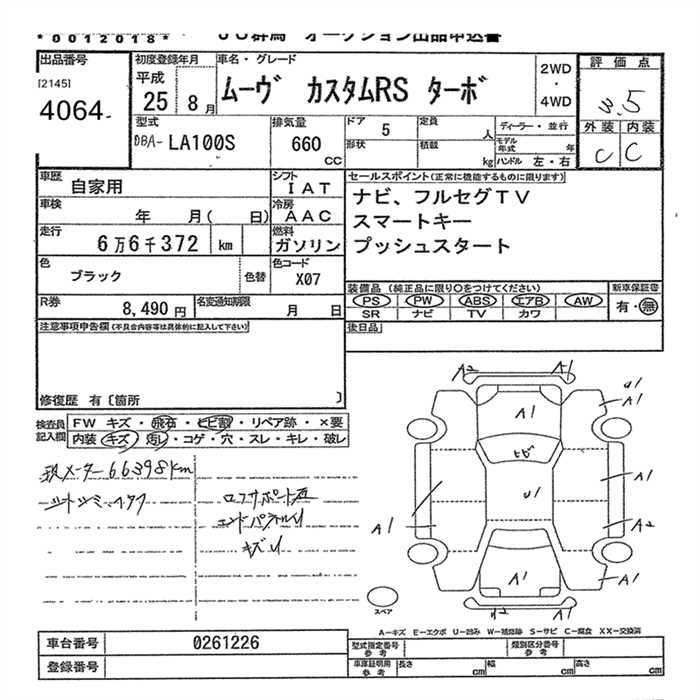 *0012018* ＪＵ群馬 オークション出品申込書
出品番号 初度登録年月 車名・グレード 評価点
[2145] 平成 2WD
4064 25 8月 ムーヴ カスタムRS ターボ ・ 3.5
4WD
型式 排気量 ドア 5 定員 人 ディーラー・並行 外装 内装
DBA- LA100S 660 CC 形状 積載 kg モデル年式 年 C C
ハンドル 左・右
車歴 自家用 シフト IAT セールスポイント(正常に機能するものに限ります)
車検 年 月( 日) 冷房 AAC ナビ、フルセグTV
走行 6万6千372 km 燃料 ガソリン スマートキー
色 ブラック 色替 色コード X07 プッシュスタート
装備品 (純正品に限り○をつけてください) 新車保証書
R券 8,490円 名変通知期限 月 日 PS PW ABS エアB AW 有・無
SR ナビ TV カワ
注意事項申告欄(不具合内容等は具体的に記入して下さい) 後日品
修復歴 有〔箇所 〕
検査員 FW キズ・飛石・ヒビ割・リペア跡・×要
記入欄 内装 キズ・汚レ・コゲ・穴・スレ・キレ・破レ
現メーター66398km
シートシミ
コアサポート
エンドパネル
キズ
A2 A1
U1
A1 A1
ヒビ
U1 A1
A1 A2
A1 A1
A2 A1
スペア
A-キズ E-エクボ U-凹み W-補修跡 S-サビ C-腐食 XX-交換済
車台番号 0261226 型式指定番号 参考 類別区分番号 参考
登録番号 車庫証明用 参考 長さ cm 幅 cm 高さ cm